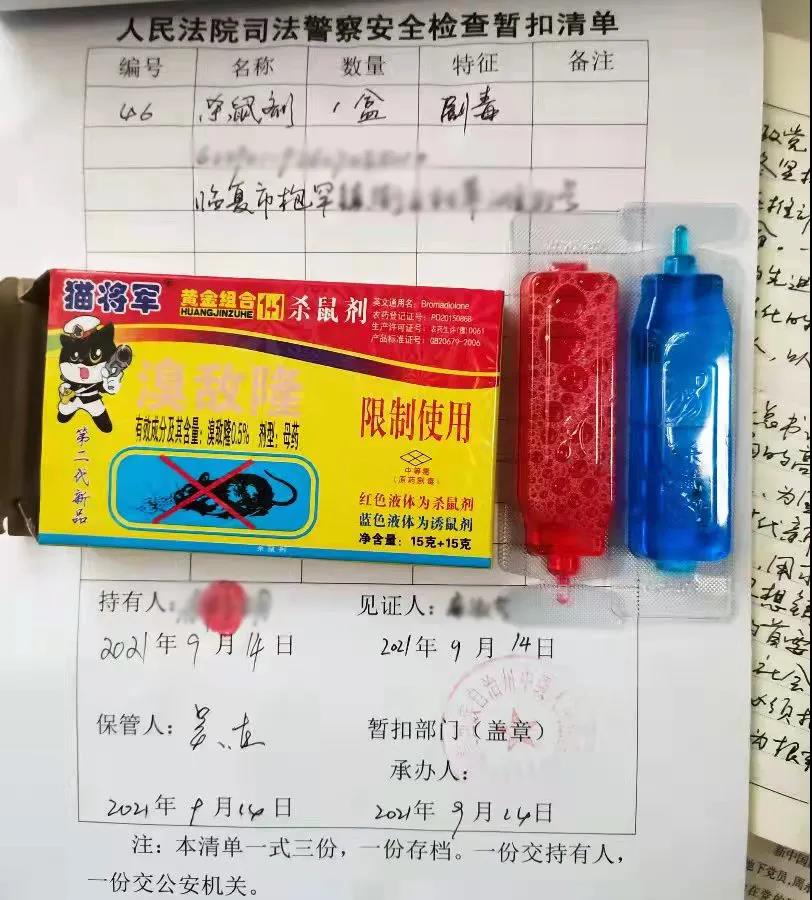 人民法院司法警察安全检查暂扣清单
编号 名称 数量 特征 备注
46 杀鼠剂 1盒 剧毒
临夏市枹罕
猫将军®
黄金组合 1+1 杀鼠剂
HUANGJINZUHE
英文通用名：Bromadiolone
农药登记证号：PD20150868
生产许可证号：农药生许(豫)0061
产品标准证号：GB20679-2006
溴敌隆
有效成分及其含量：溴敌隆0.5% 剂型：母药
限制使用
中等毒
(原药剧毒)
第二代新品
红色液体为杀鼠剂
蓝色液体为诱鼠剂
净含量：15克+15克
杀鼠剂
持有人：
见证人：
2021年9月14日
2021年9月14日
保管人：
暂扣部门（盖章）
自治州中
承办人：
2021年9月14日
2021年9月14日
注：本清单一式三份，一份存档。一份交持有人，
一份交公安机关。